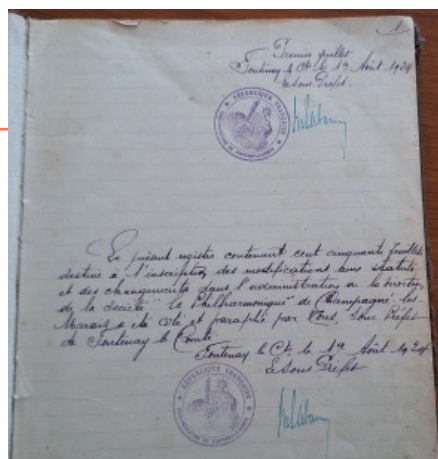 1
Premier feuillet
Fontenay le Cte le 19 Août 1924
Le Sous Préfet.
RÉPUBLIQUE FRANÇAISE
Le présent registre contenant cent cinquante feuillets
destiné à l'inscription des modifications aux statuts
et des changements dans l'administration ou la direction
de la Société "la Philharmonique" de Champagné-les-
Marais a été coté et paraphé par Nous, Sous Préfet
de Fontenay le Comte
Fontenay le Cte le 19 Août 1924
Le Sous Préfet
RÉPUBLIQUE FRANÇAISE